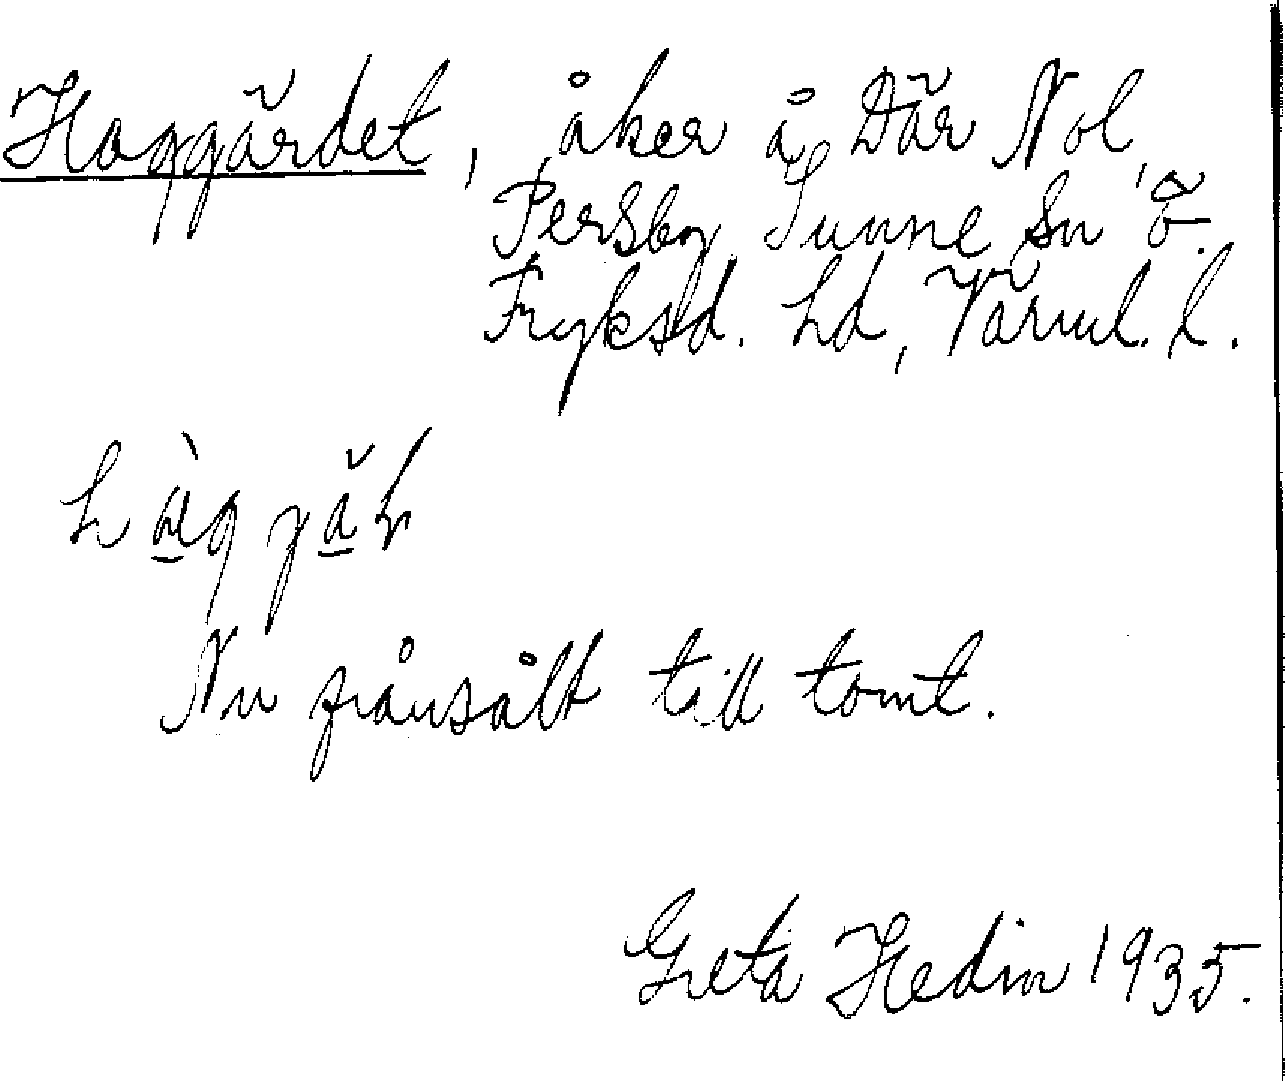 Haggärdet, åker å Där Nol,
Persby Sunne sn Ö.
Fryksd. hd, Värml. l.
Nu frånsålt till tomt.
Greta Hedin 1935.